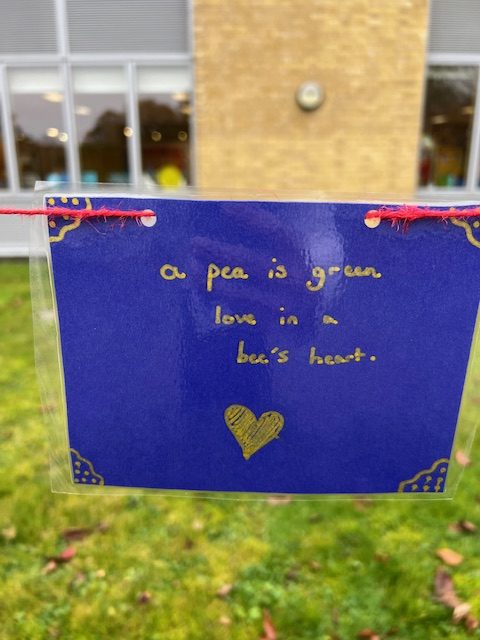 a pea is green
love in a
bee's heart.